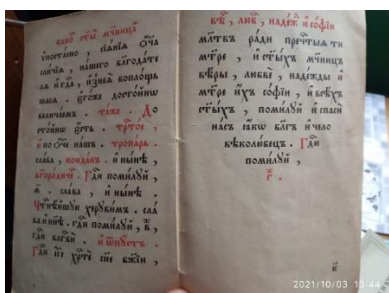 канѡ́ с҃ты́м мч҃ница
ѵ҆постасно , сїѧ́нїѧ ѻ҆́ч҃а
сли́чїѧ , на́шегѡ бл҃года́те
лѧ и҆ гд҃а , и҆з̾неѧ̀ вопло́щь
шасѧ , є҆го́же досто́йнѡ
велича́ем . та́же . До
сто́йнѡ є҆́сть . трⷭ҇то́е ,
и҆ по ѻ҆́ч҃е на́шъ . тропа́рь .
сла́ва , конда́къ . и҆ ны́нѣ ,
бг҃оро́диченъ . Гдⷭ҇и поми́лꙋй ,
м҃ . сла́ва , и҆ ны́нѣ .
Чⷭ҇тнѣ́йшꙋю херꙋви̑мъ . сла́
ва и҆ ны́нѣ . гдⷭ҇и поми́лꙋй , в҃ ,
гдⷭ҇и блгⷭ҇ви́ . и҆ ѿпꙋ́стъ .
Гдⷭ҇и і҆с҃е хрⷭ҇тѐ сн҃е бж҃їи ,
вѣ́ , люб́ , наде́ж и҆ софі́и
мл҃твъ ра́ди пречⷭ҇тыѧ ти
мт҃ре , и҆ ст҃ы́хъ мч҃ницъ
вѣ́ры , любвѐ , наде́жды и҆
мт҃ре и҆́хъ софі́и , и҆ всѣ́хъ
ст҃ы́хъ , поми́лꙋй и҆ спаси́
на́съ ꙗ҆́кѡ бл҃гъ и҆ человѣ
вѣколю́бецъ . Гдⷭ҇и
поми́лꙋй ,
г҃ .
2021/10/03 13:44